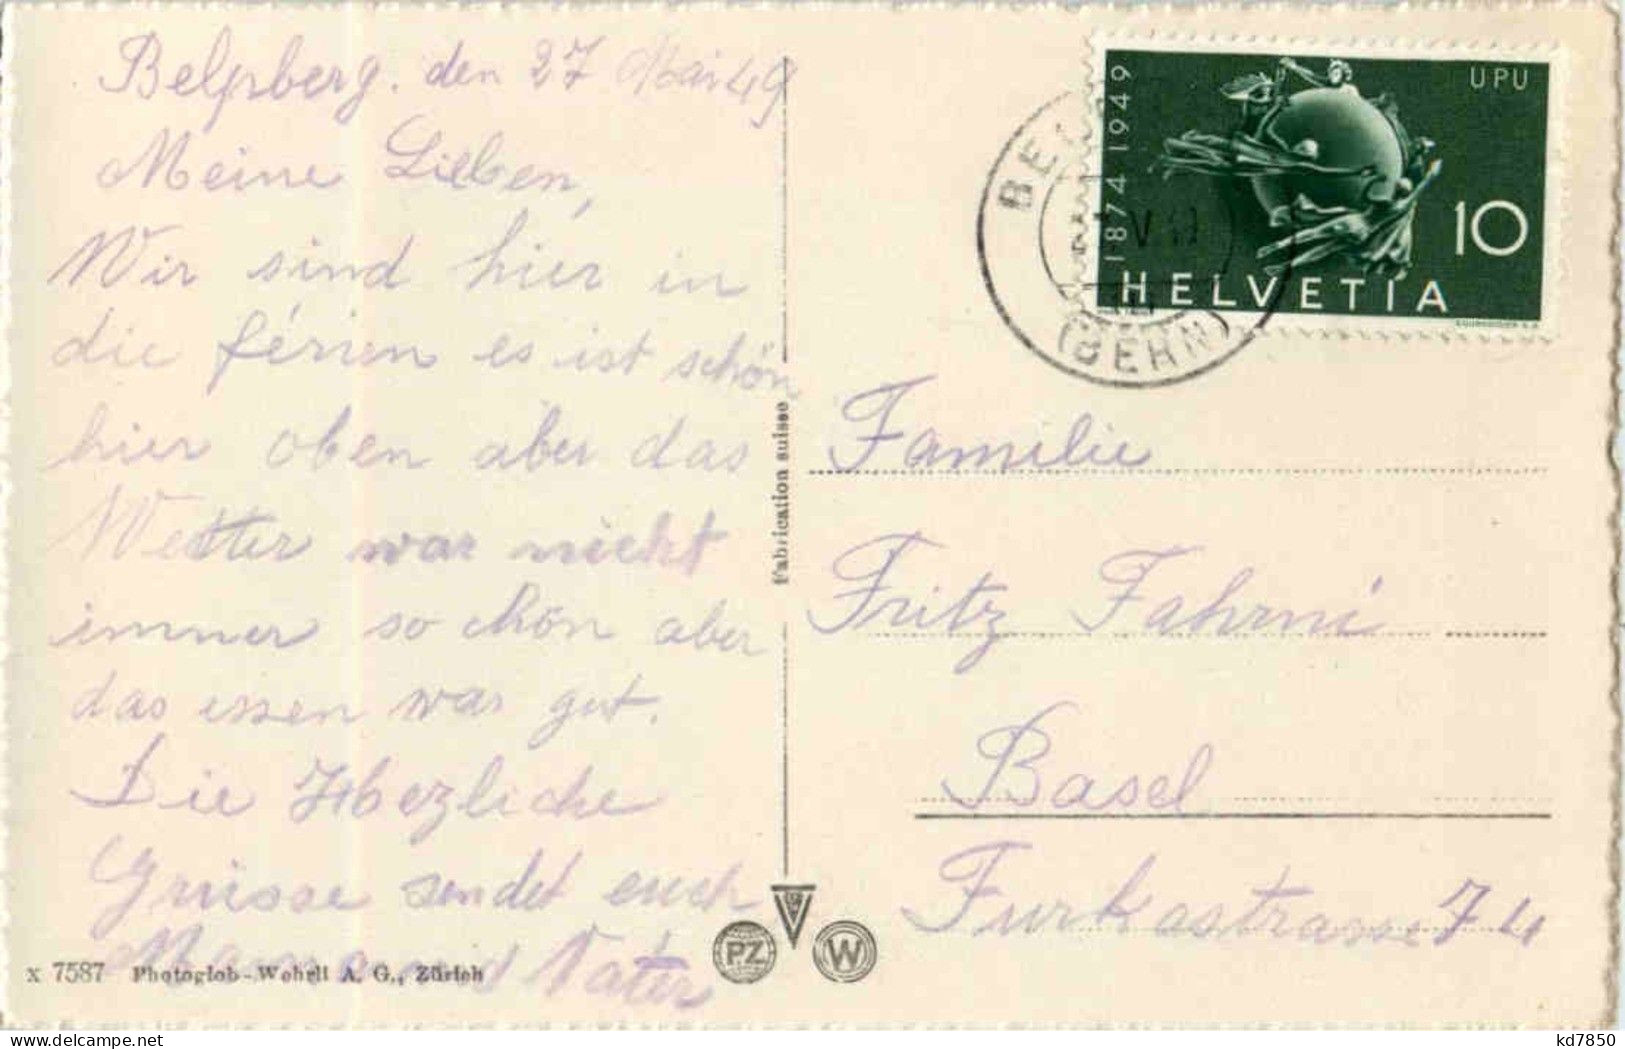 Belpberg. den 27 Mai 49
Meine Lieben,
Wir sind hier in
die férien es ist schön
hier oben aber das
Wetter war nicht
immer so chön aber
das essen war gut.
Die Herzliche
Grüsse sendet euch
Mama und Vater
x 7587 Photoglob-Wehrli A. G., Zürich
Fabrication suisse
PZ
W
1874 1949
UPU
10
HELVETIA
(BERN)
Familie
Fritz Fahrni
Basel
Furkastrasse 74
kd7850